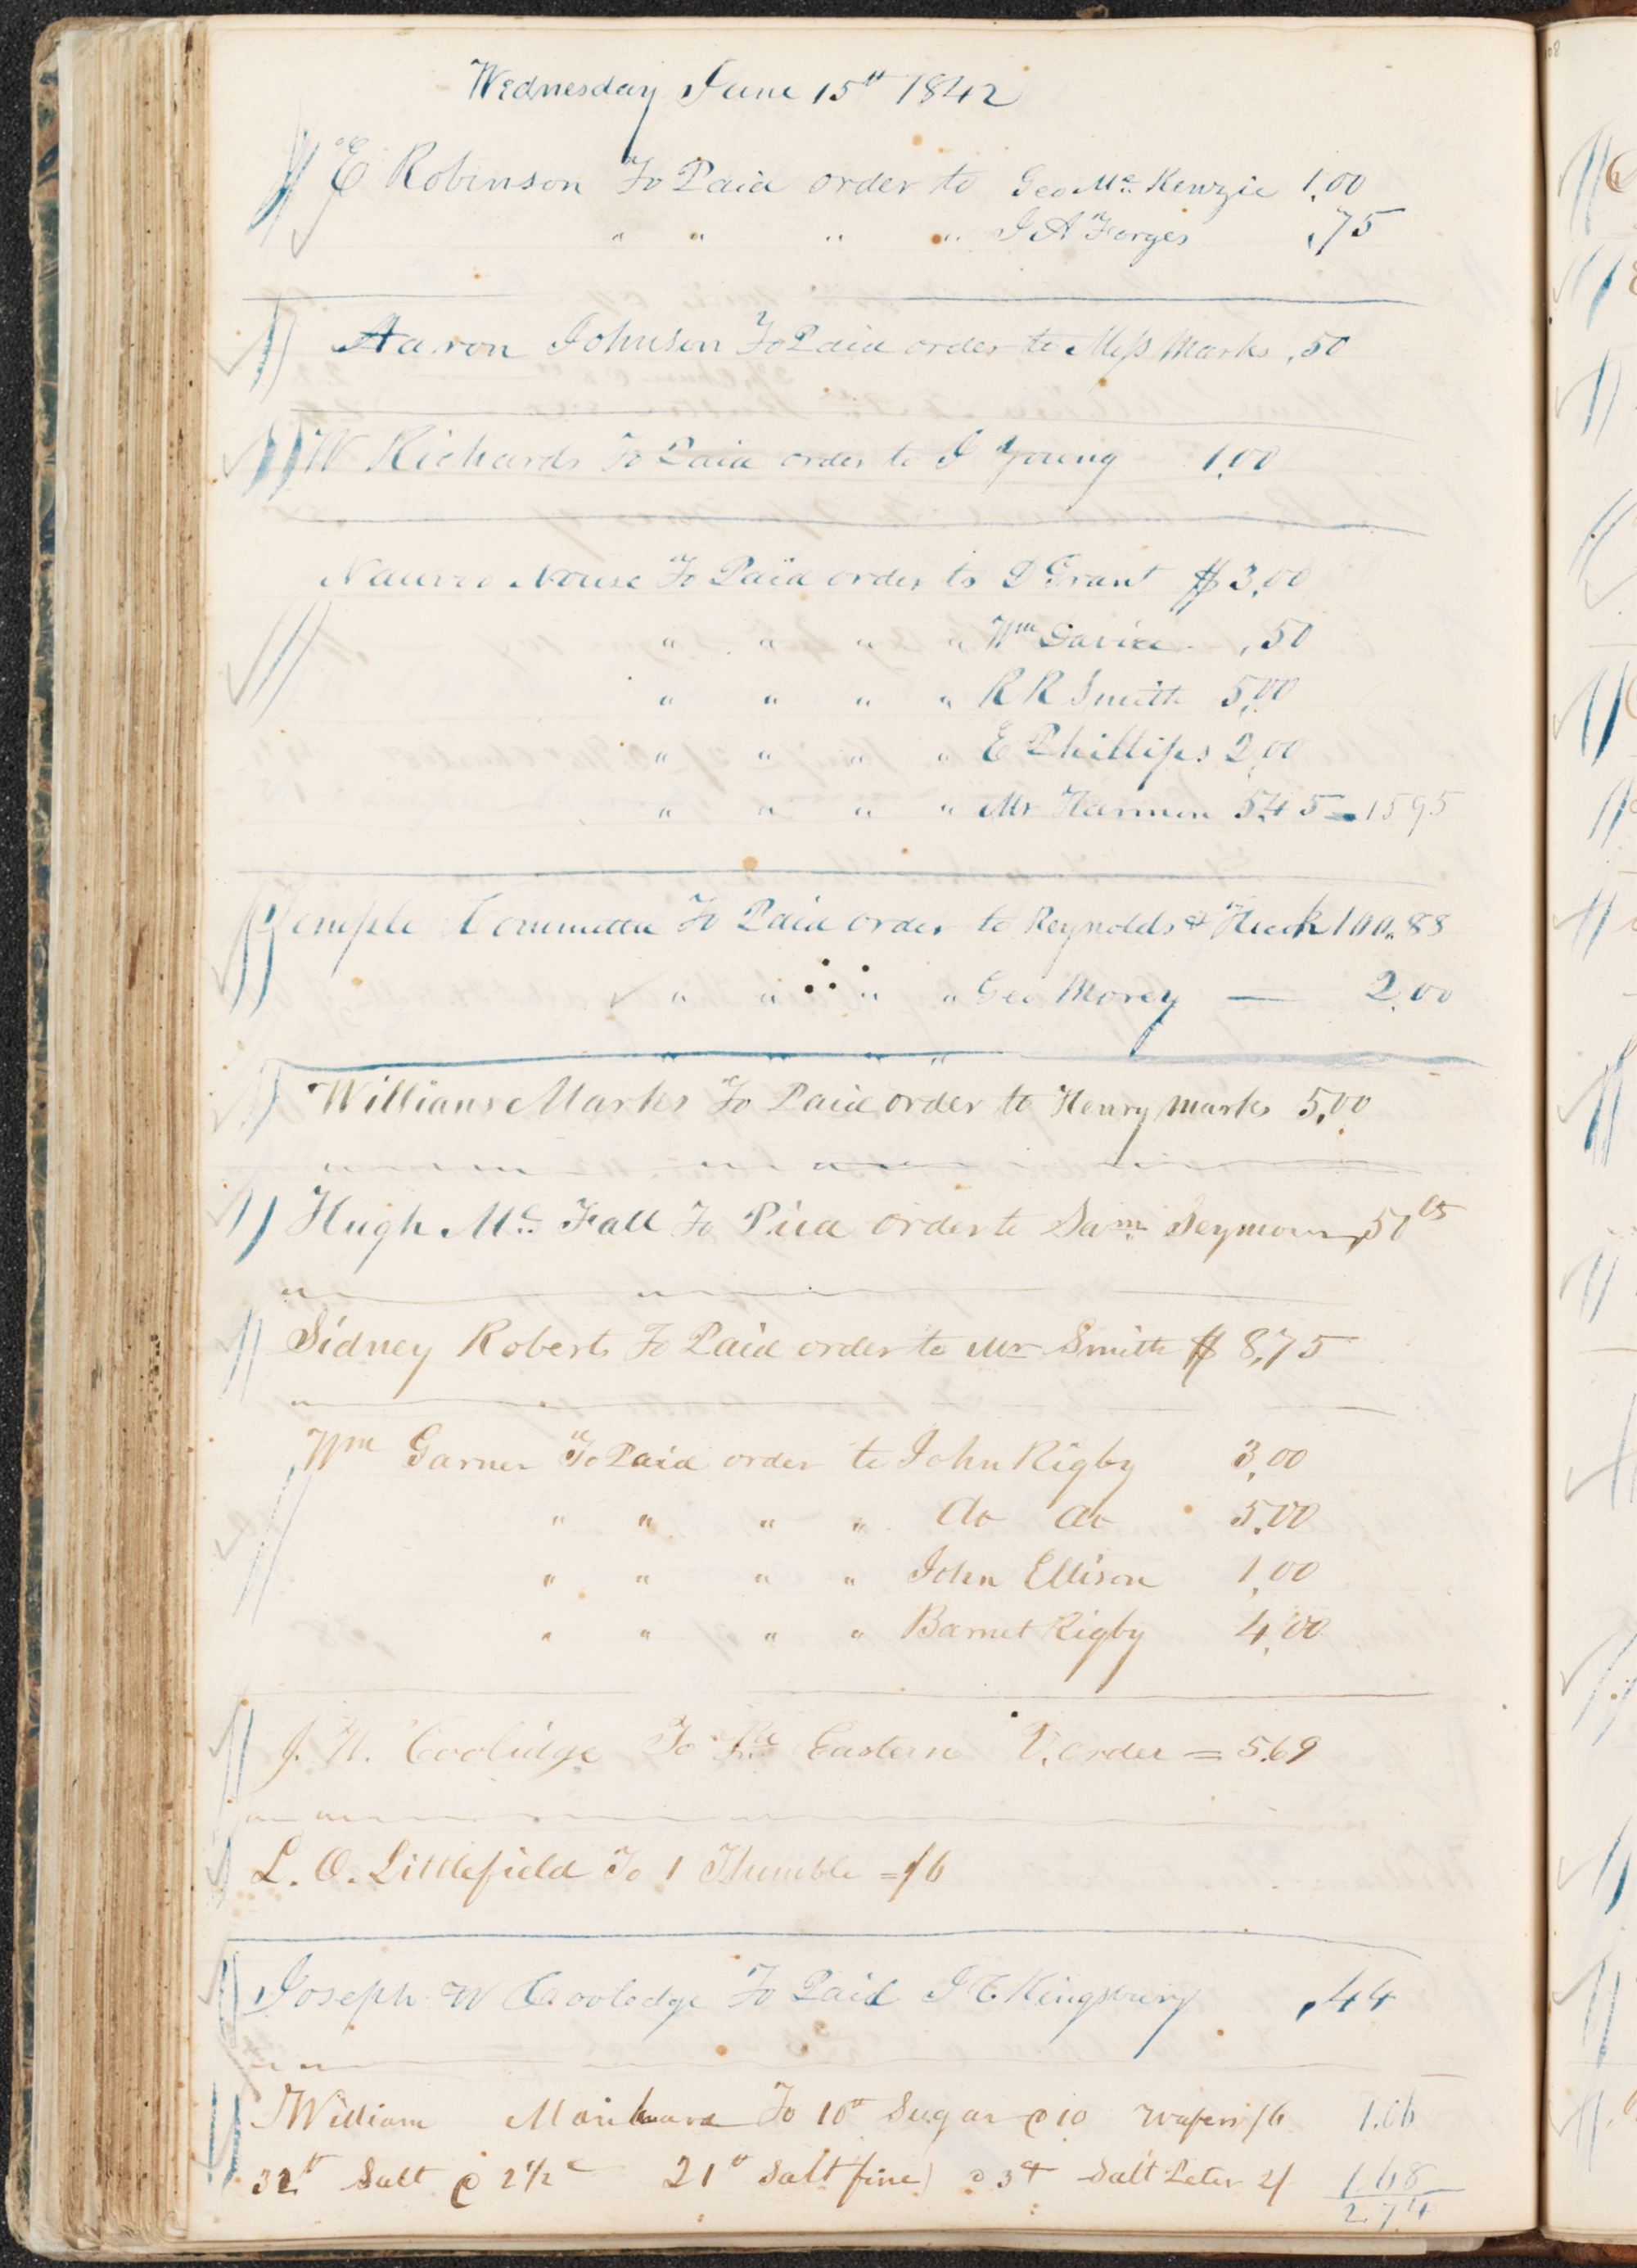 Wednesday June 15th 1842
E Robinson To Paid order to Geo Mc Kenzie 1.00
" " " " J A Forges ,75
Aaron Johnson To Paid order to Miss Marks ,50
W Richards To Paid order to J Young 1,00
Nauvoo House To Paid order to D Grant $3,00
" " " " Wm David ,50
" " " " R R Smith 5,00
" " " " E Phillips 2,00
" " " " Mr Harmon 5.45 = 1595
Temple Committee To Paid order to Reynolds & 100.88
" " " " Geo Morey — 2,00
" " " "
William Marks To Paid order to Henry Marks 5,00
Hugh Mc Fall To Paid order to Sam Seymour ,50cts
Sidney Roberts To Paid order to Mr Smith $ 8,75
Wm Garner To Paid order to John Rigby 3,00
" " " " do do 5.00
" " " " John Ellison 1,00
" " " " Barnet Rigby 4,00
J. W. Coolidge To Pd Eastern V. order = 5.69
L. O. Littlefield To 1 Thimble = /6
Joseph W Cooledge To Paid J C Kingsbury ,44
William To 10 Sugar @ 10 wafers /6 1.06
32 Salt @ 2 1/2 c 21 Salt (fine) @ 3 Salt Peter 2/ 1.68
2.74